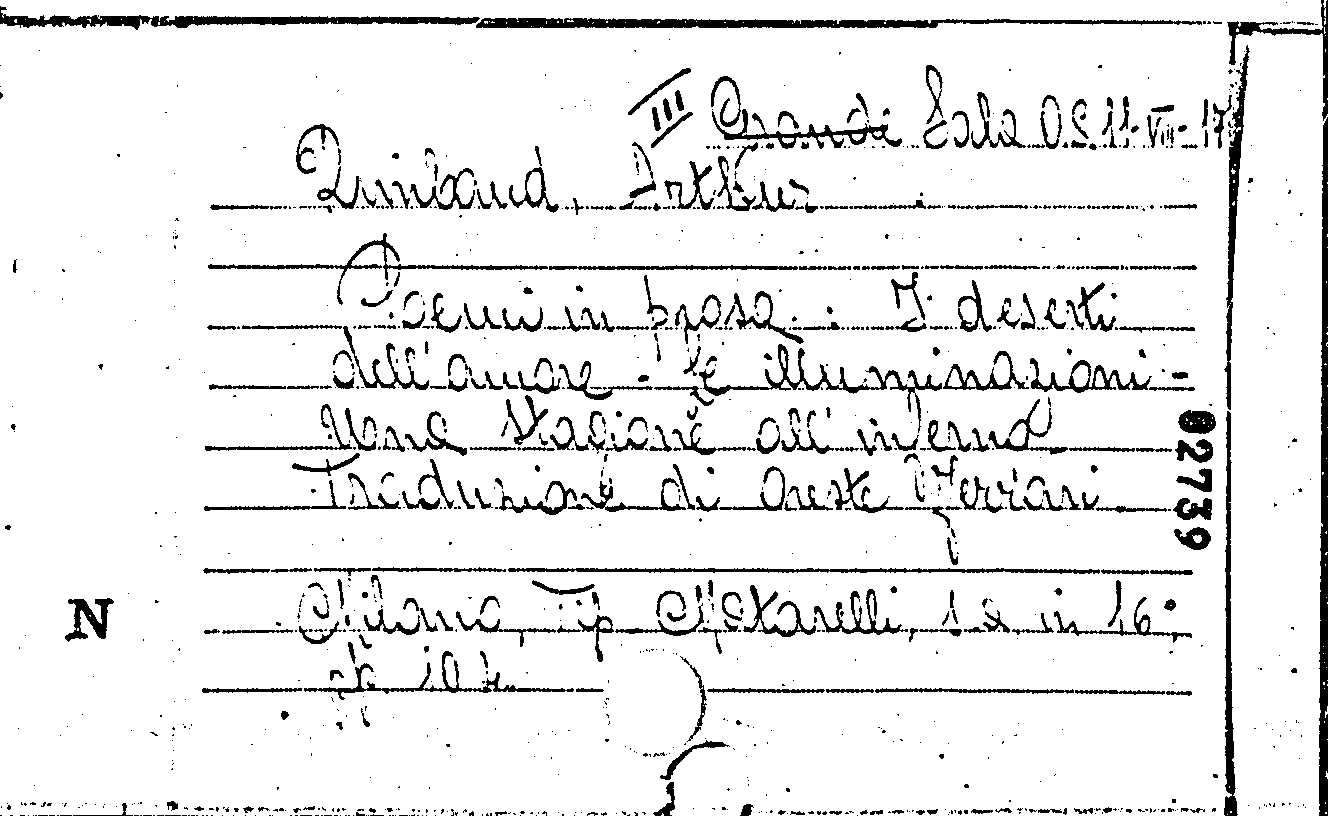 III Grande Sala O.S. 11-VIII-17
Rimbaud, Arthur
Poemi in prosa : I deserti
dell'amore - Le illuminazioni -
Una stagione all'inferno
Traduzione di Oreste Ferrari
02739
N
Milano, Tip. Matarelli, s.a. in 16°,
pp. 104.